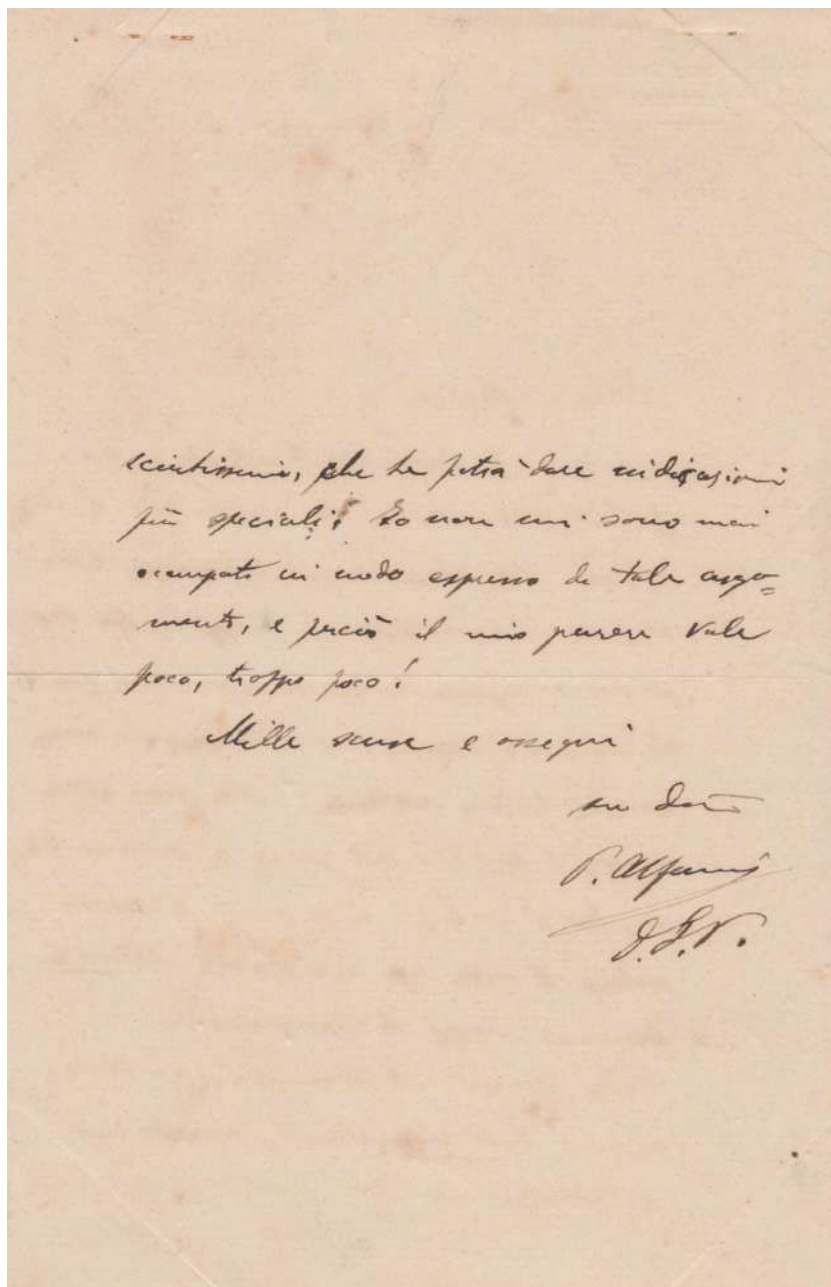 scientissimo, che Le potrà dare indicazioni
più speciali; Io non mi sono mai
occupato in modo espresso di tale argo=
mento, e perciò il mio parere vale
poco, troppo poco!
Mille scuse e ossequi
suo
P. Alfani
D.S.P.